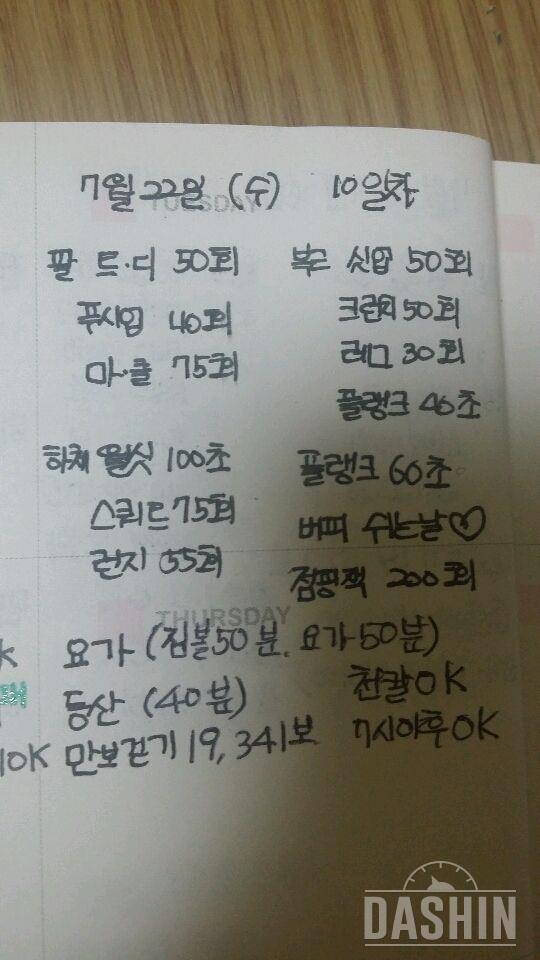 7월 22일 (수) 10일차
TUESDAY
팔 트·디 50회
푸시업 40회
마·클 75회
복부 싯업 50회
크런치 50회
레그 30회
플랭크 40초
하체 월싯 100초
스쿼트 75회
런지 55회
플랭크 60초
버피 쉬는날♡
점핑잭 200회
THURSDAY
요가 (짐볼50분, 요가50분)
등산 (40분)
천칼OK
10K 만보걷기 19,341보
7시이후OK
DASHIN